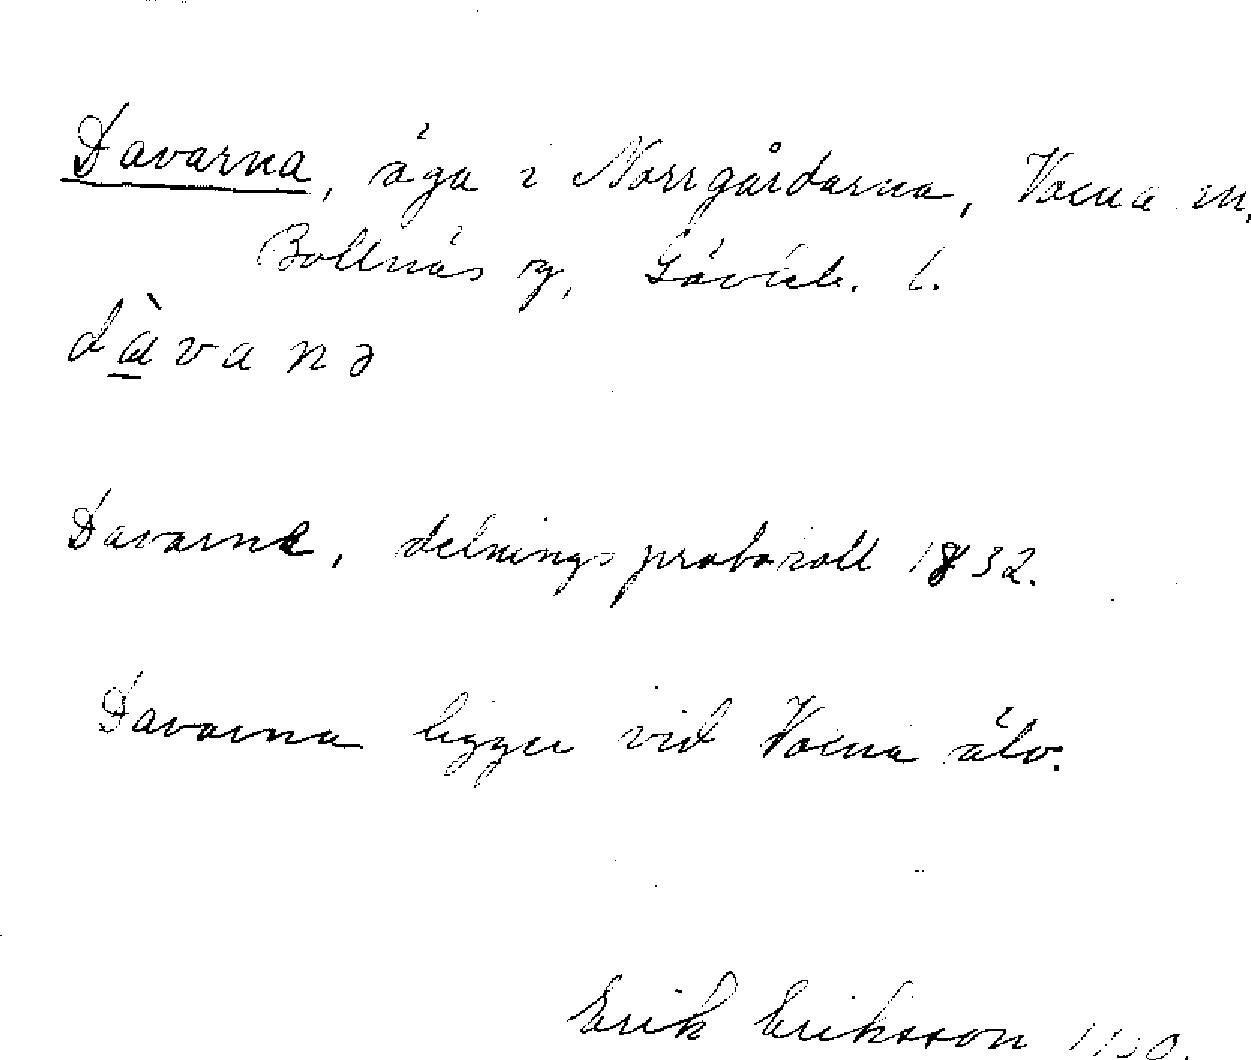 Davarna, äga i Norrgårdarna, Voxna sn,
Bollnäs Gävleb. l.
dàvanə
Davarne, delningsprotokoll 1832.
Davarna ligger vid Voxna älv.
Erik Eriksson